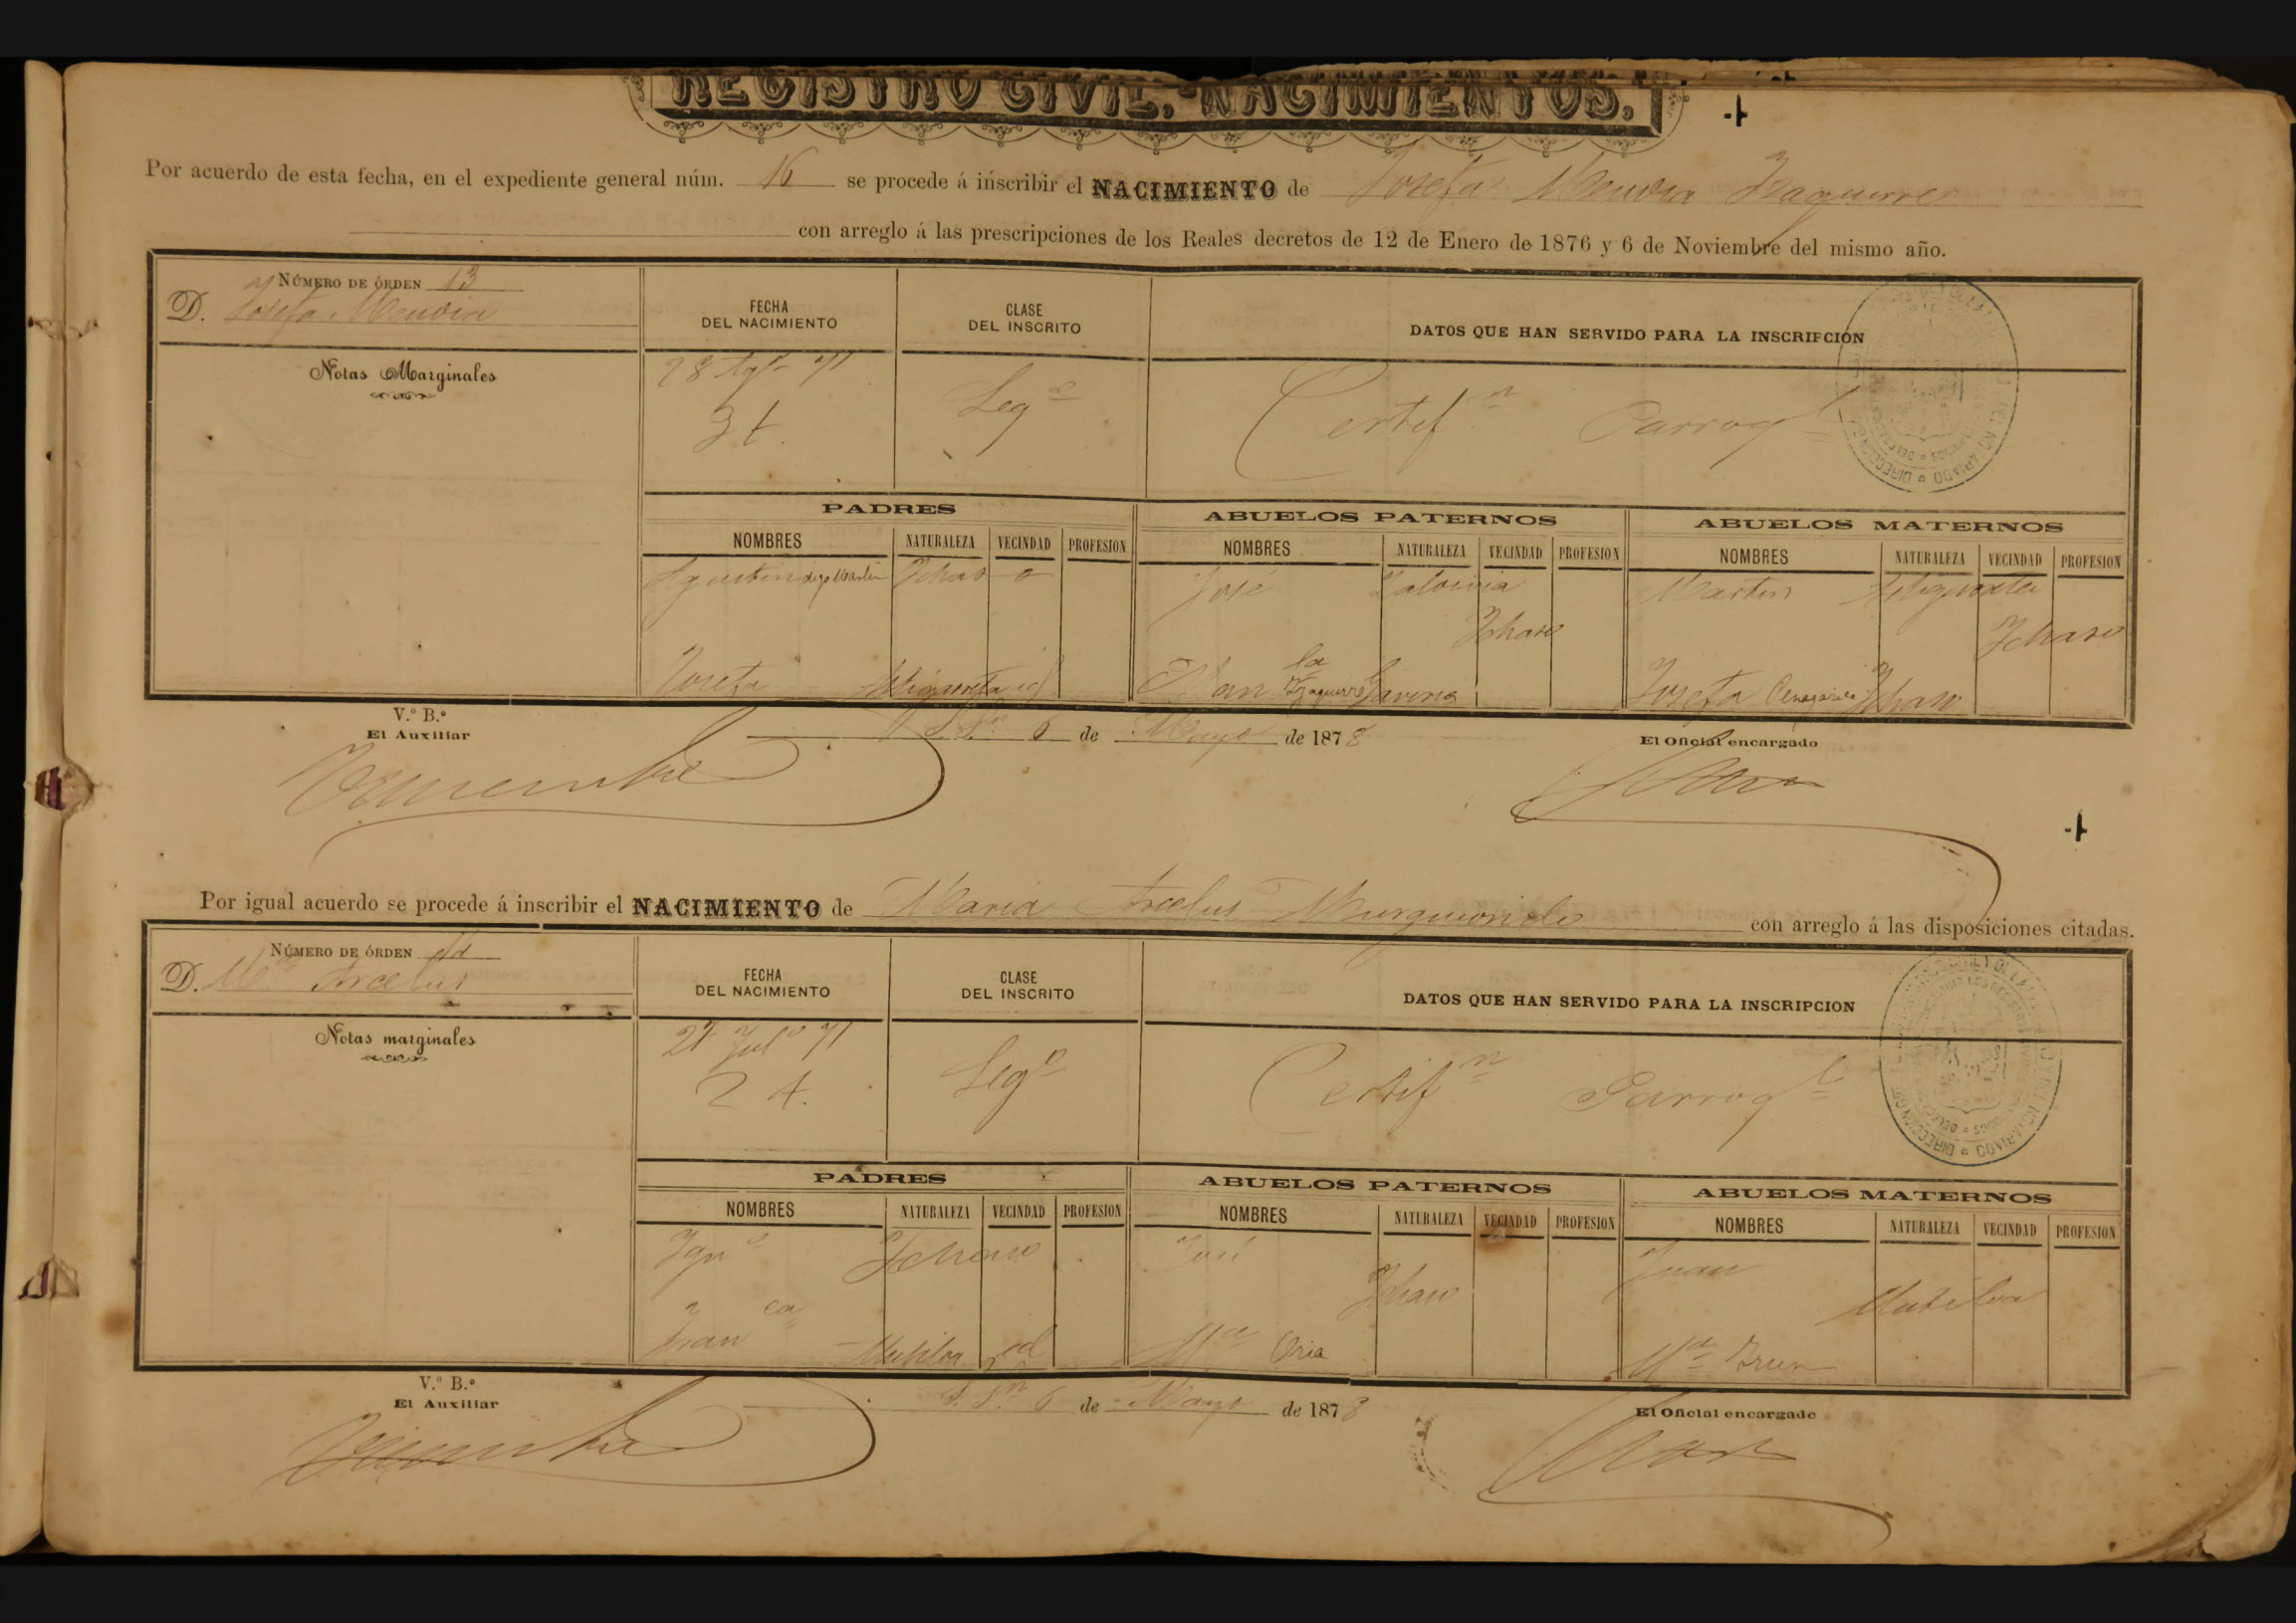 REGISTRO CIVIL.-NACIMIENTOS.
Por acuerdo de esta fecha, en el expediente general núm. 16 se procede á inscribir el NACIMIENTO de Josefa
con arreglo á las prescripciones de los Reales decretos de 12 de Enero de 1876 y 6 de Noviembre del mismo año.
NÚMERO DE ÓRDEN 13
D. Josefa
FECHA DEL NACIMIENTO
CLASE DEL INSCRITO
DATOS QUE HAN SERVIDO PARA LA INSCRIPCION
Notas Marginales
28 71
3 t.
Leg.ª
Certif.n Parroq.l
PADRES
ABUELOS PATERNOS
ABUELOS MATERNOS
NOMBRES NATURALEZA VECINDAD PROFESION NOMBRES NATURALEZA VECINDAD PROFESION NOMBRES NATURALEZA VECINDAD PROFESION
Agustin digo Martin Ichaso José Zaldivia Martin
Ichaso Ichaso
Josefa id Gaviria Josefa Ichaso
V.º B.º
El Auxiliar
S. S.n 6 de Mayo de 1878
El Oficial encargado
Por igual acuerdo se procede á inscribir el NACIMIENTO de Maria Arcelus Murguiondo con arreglo á las disposiciones citadas.
NÚMERO DE ÓRDEN
D. M.ª Arcelus
FECHA DEL NACIMIENTO
CLASE DEL INSCRITO
DATOS QUE HAN SERVIDO PARA LA INSCRIPCION
Notas marginales
27 Julº 71
2 t.
Leg.ª
Certif.n Parroq.l
PADRES
ABUELOS PATERNOS
ABUELOS MATERNOS
NOMBRES NATURALEZA VECINDAD PROFESION NOMBRES NATURALEZA VECINDAD PROFESION NOMBRES NATURALEZA VECINDAD PROFESION
Ign.º Ichaso José Juan
Ichaso Mutiloa
Fran.ca Mutiloa id M.ª Oria M.ª
V.º B.º
El Auxiliar
S. S.n 6 de Mayo de 1878
El Oficial encargado